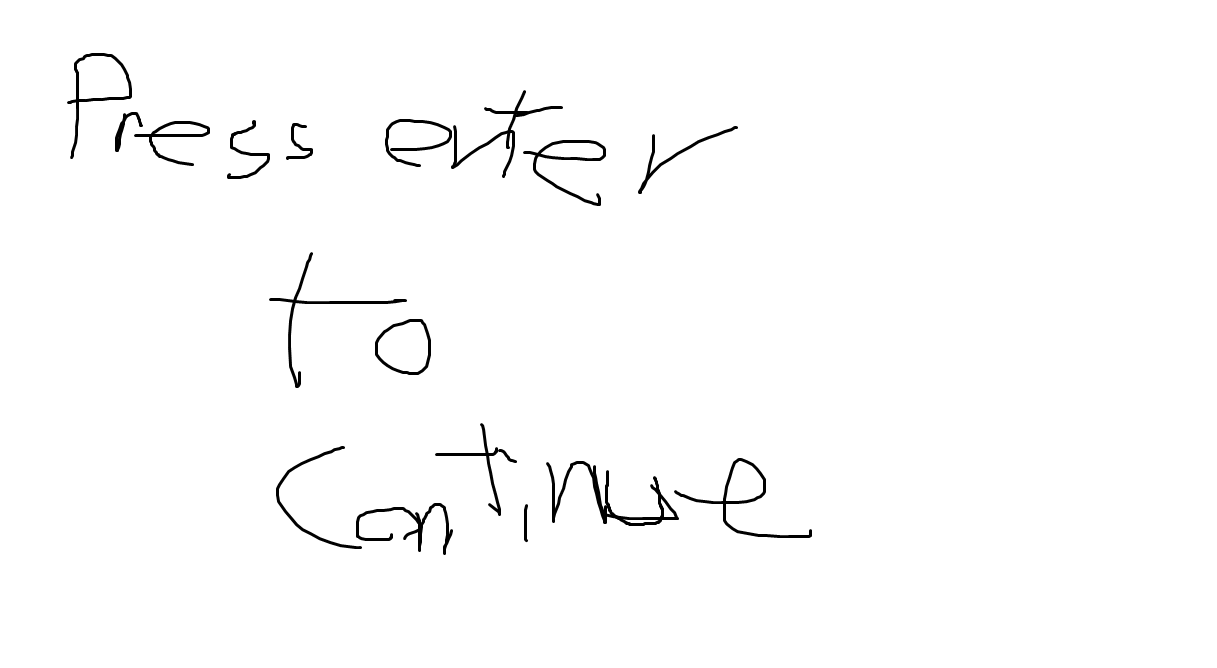 Press enter
to
Continue